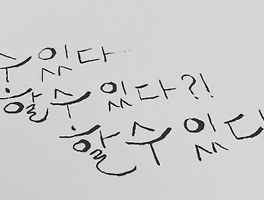 수 있다...
할 수 있다?!
할 수 있다